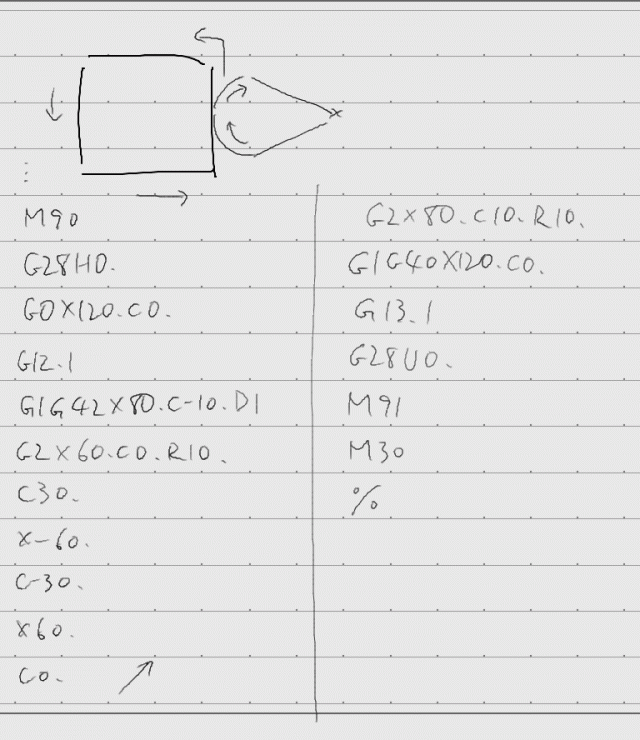 M90
G28H0.
G0X120.C0.
G12.1
G1G42X80.C-10.D1
G2X60.C0.R10.
C30.
X-60.
C-30.
X60.
C0.
G2X80.C10.R10.
G1G40X120.C0.
G13.1
G28U0.
M91
M30
%